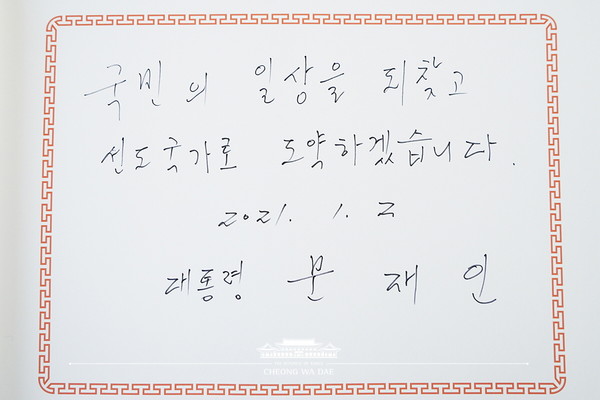 국민의 일상을 되찾고
선도국가로 도약하겠습니다.
2021. 1. 2
대통령 문 재 인
CHEONG WA DAE